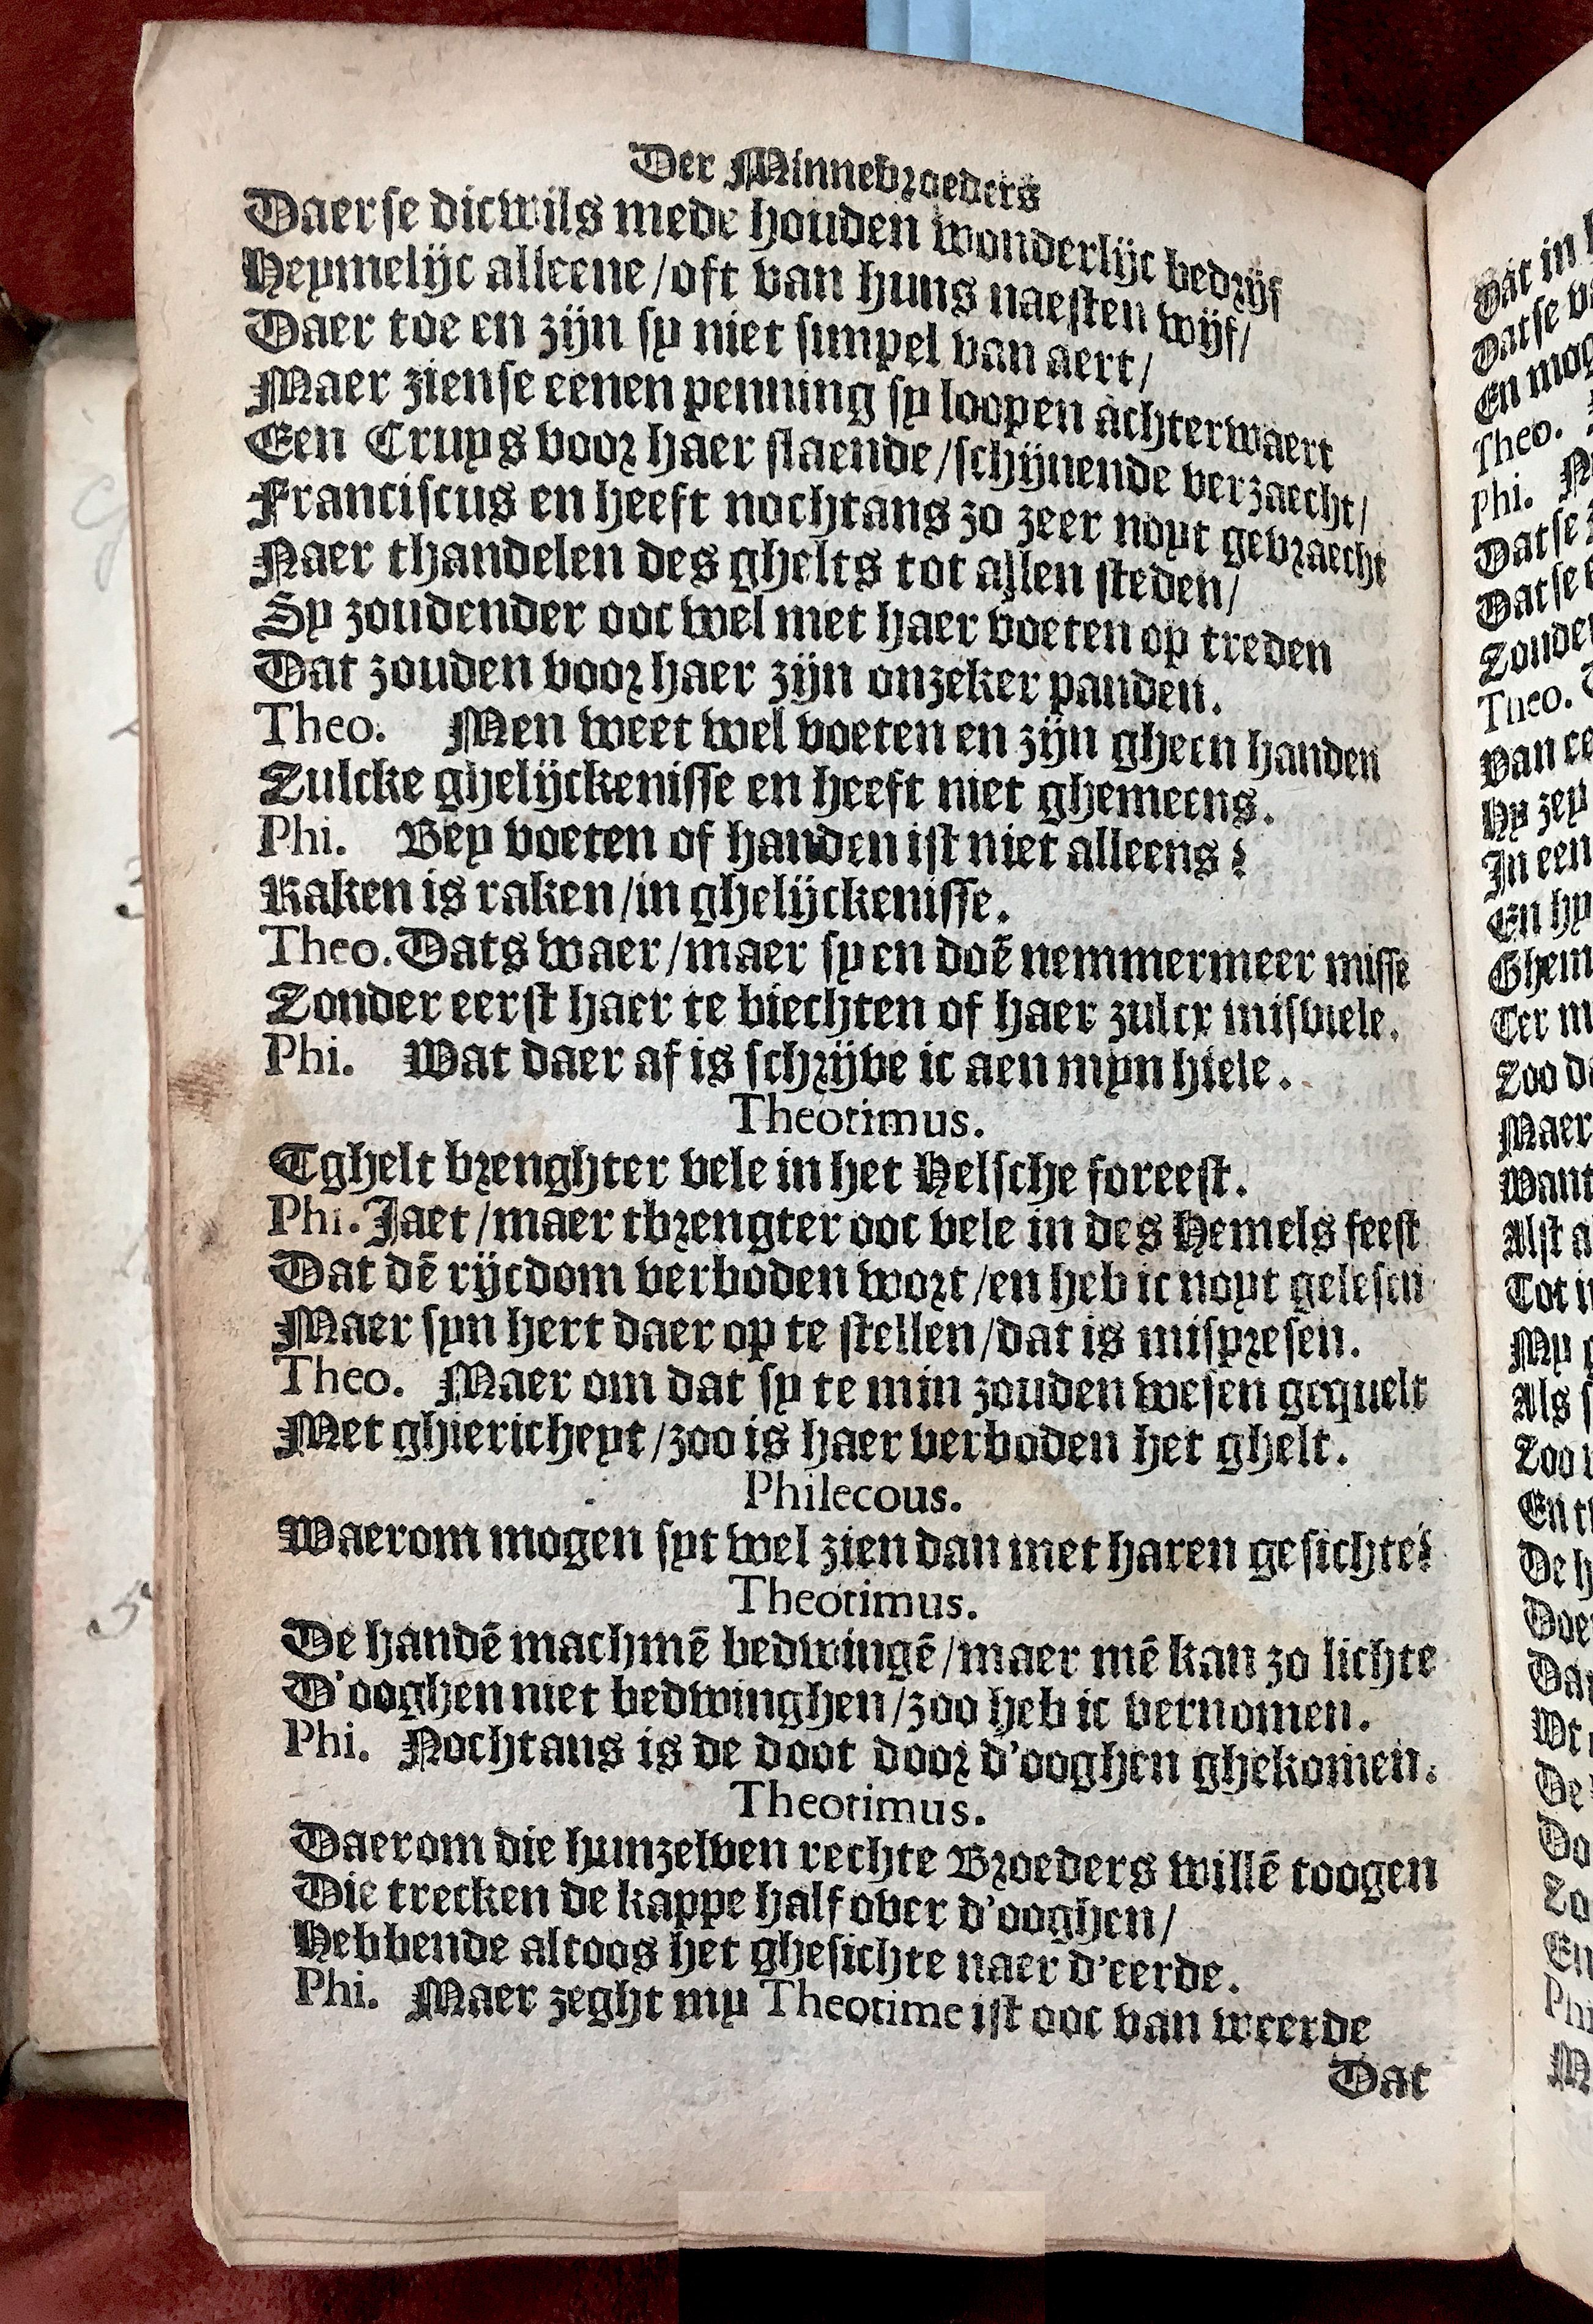 Der Minnebroeders
Daerse dicwils mede houden wonderlijc bedrijf
Heymelijc alleene/oft van huns naesten wijf/
Daer toe en zijn sy niet simpel van aert/
Maer ziense eenen penning sy loopen achterwaert
Een Cruys voor haer slaende/schijnende verzaecht/
Franciscus en heeft nochtans zo zeer noyt gebraecht
Naer thandelen des ghelts tot allen steden/
Sy zoudender ooc wel met haer voeten op treden
Dat zouden voor haer zijn onzeker panden.
Theo. Men weet wel voeten en zijn gheen handen
Zulcke ghelijckenisse en heeft niet ghemeens.
Phi. Bey voeten of handen ist niet alleens?
Raken is raken/in ghelijckenisse.
Theo. Dats waer/maer sy en doē nemmermeer misse
Zonder eerst haer te biechten of haer zulcx misviele.
Phi. Wat daer af is schrijve ic aen myn hiele.
Theotimus.
Tghelt brenghter vele in het Helsche foreest.
Phi. Jaet/maer tbrengter ooc vele in des Hemels feest
Dat dē rijcdom verboden wort/en heb ic noyt gelesen
Maer syn hert daer op te stellen/dat is mispresen.
Theo. Maer om dat sy te min zouden wesen gequelt
Met ghiericheyt/zoo is haer verboden het ghelt.
Philecous.
Waerom mogen syt wel zien dan met haren gesichte?
Theotimus.
De handē machmē bedwingē/maer mē kan zo lichte
D'ooghen niet bedwinghen/zoo heb ic vernomen.
Phi. Nochtans is de doot door d'ooghen ghekomen.
Theotimus.
Daerom die hunzelven rechte Broeders willē toogen
Die trecken de kappe half over d'ooghen/
Hebbende altoos het ghesichte naer d'eerde.
Phi. Maer zeght my Theotime ist ooc van weerde
Dat